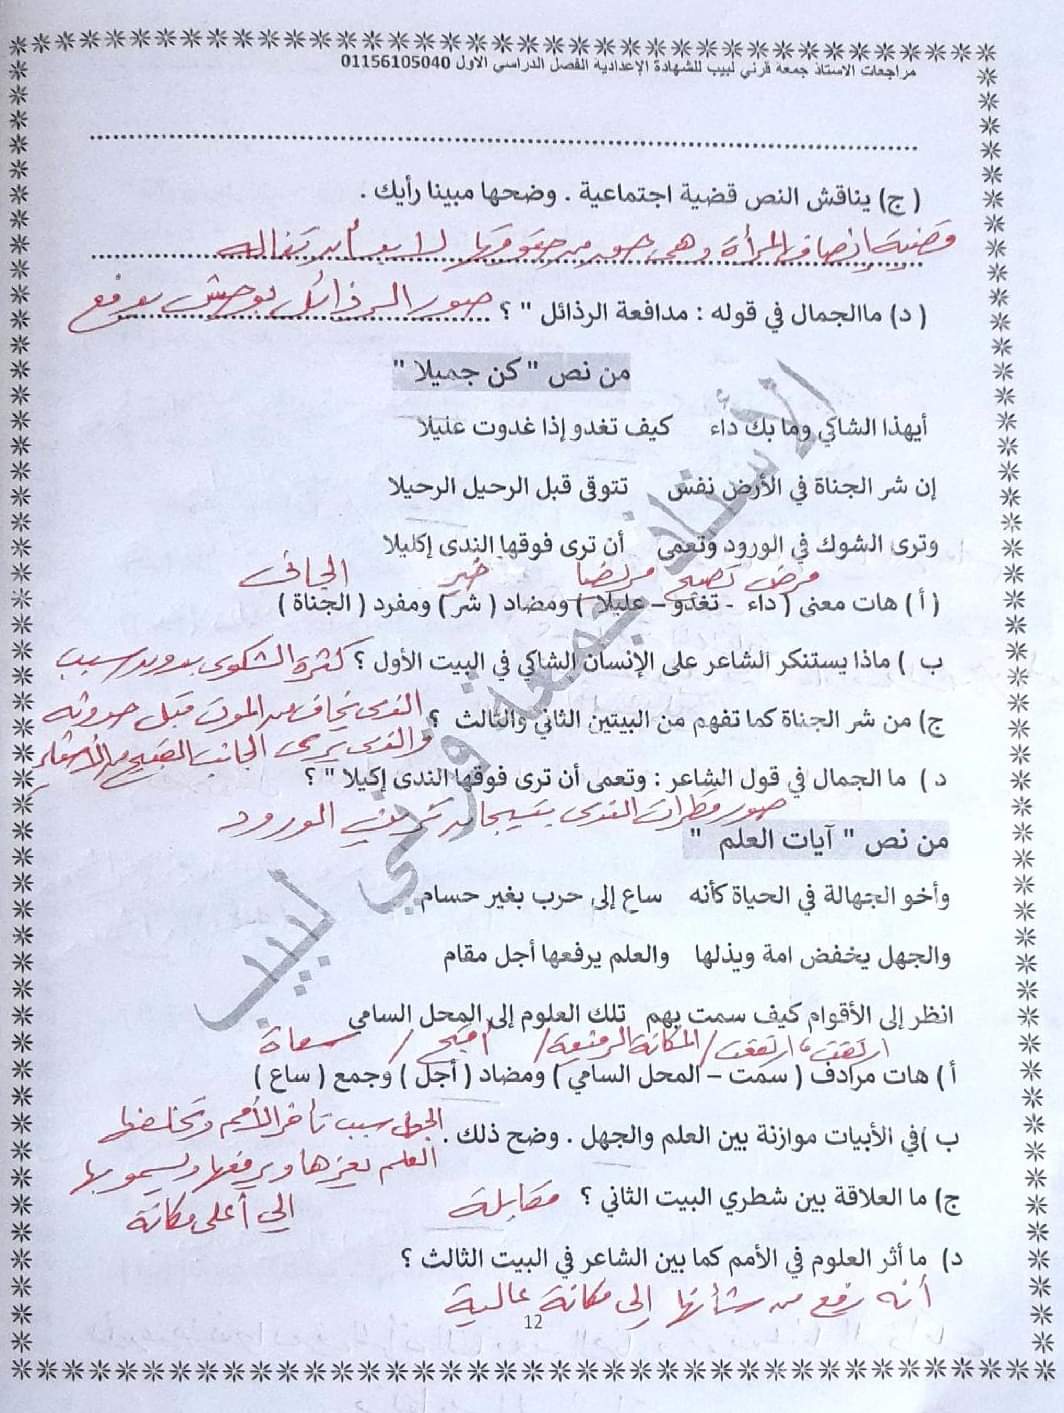 مراجعات الاستاذ جمعة قرني لبيب للشهادة الإعدادية الفصل الدراسي الاول 01156105040
( ج) يناقش النص قضية اجتماعية . وضحها مبينا رأيك .
قضية انصاف المرأة وهى حق من حقوقها لا بد أن تناله
( د) ماالجمال في قوله : مدافعة الرذائل " ؟ صور الرذائل بوحش يدفع
من نص " كن جميلا "
أيهذا الشاكي وما بك داء كيف تغدو إذا غدوت عليلا
إن شر الجناة في الأرض نفس تتوقى قبل الرحيل الرحيلا
وترى الشوك في الورود وتعمى أن ترى فوقها الندى إكليلا
مرض تصبح مريضا خير الجانى
( أ ) هات معنى ( داء - تغدو – عليلا ) ومضاد ( شر ) ومفرد ( الجناة )
ب ) ماذا يستنكر الشاعر على الإنسان الشاكي في البيت الأول ؟ كثرة الشكوى بدون سبب
ج) من شر الجناة كما تفهم من البيتين الثاني والثالث ؟ الذى يخاف من الموت قبل حدوثه
والذى يرى الجانب القبيح من الأشياء
د ) ما الجمال في قول الشاعر : وتعمى أن ترى فوقها الندى إكيلا " ؟
صور قطرات الندى بتيجان تزين الورود
من نص " آيات العلم "
وأخو الجهالة في الحياة كأنه ساع إلى حرب بغير حسام
والجهل يخفض امة ويذلها والعلم يرفعها أجل مقام
انظر إلى الأقوام كيف سمت بهم تلك العلوم إلى المحل السامي
ارتقت، ارتفعت / المكانة الرفيعة / أقبح / سعاة
أ ) هات مرادف ( سمت – المحل السامي ) ومضاد ( أجل ) وجمع ( ساع )
ب )في الأبيات موازنة بين العلم والجهل . وضح ذلك . الجهل سبب تأخر الأمم وتخلفها
العلم يعزها ويرفعها ويسمو بها
ج) ما العلاقة بين شطري البيت الثاني ؟ مقابلة
الي أعلى مكانة
د) ما أثر العلوم في الأمم كما بين الشاعر في البيت الثالث ؟
أنه رفع من شأنها إلى مكانة عالية
12
الأستاذ جمعة قرني لبيب